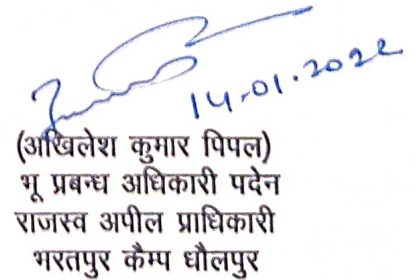 14-01-2022
(अखिलेश कुमार पिपल)
भू प्रबन्ध अधिकारी पदेन
राजस्व अपील प्राधिकारी
भरतपुर कैम्प धौलपुर